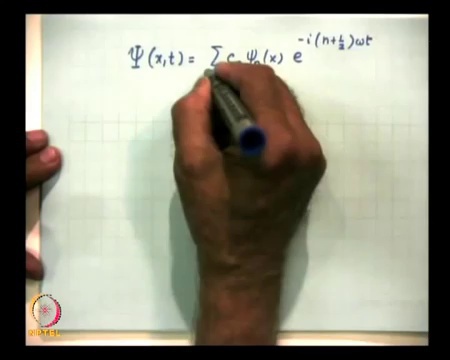 Ψ(x,t) = Σ cₙ ψₙ(x) e^{-i(n+½)ωt}
NPTEL